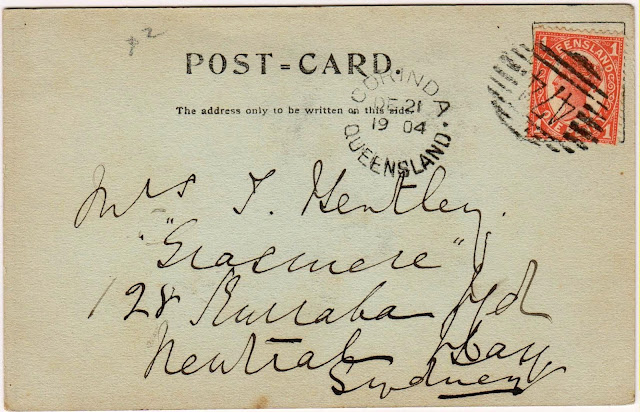 POST=CARD.
The address only to be written on this side.
CORINDA
DE 21
19 04
QUEENSLAND
1 QUEENSLAND 1
Mrs T. Hentley.
"Grasmere"
128 Kurraba Rd
Neutral Bay
Sydney
$2